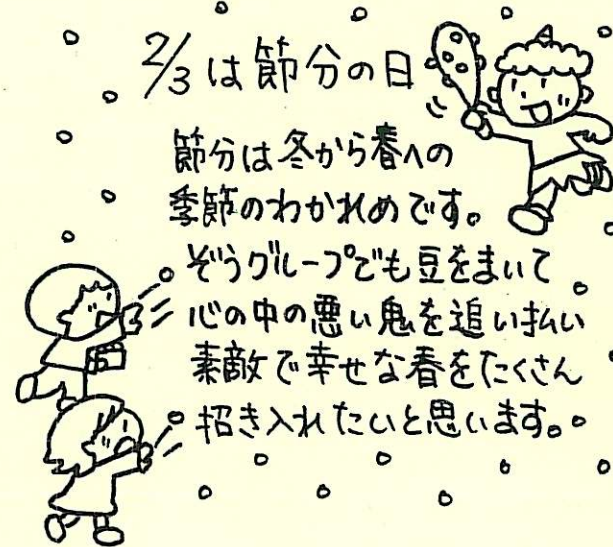 2/3は節分の日
節分は冬から春への
季節のわかれめです。
ぞうグループでも豆をまいて
心の中の悪い鬼を追い払い
素敵で幸せな春をたくさん
招き入れたいと思います。